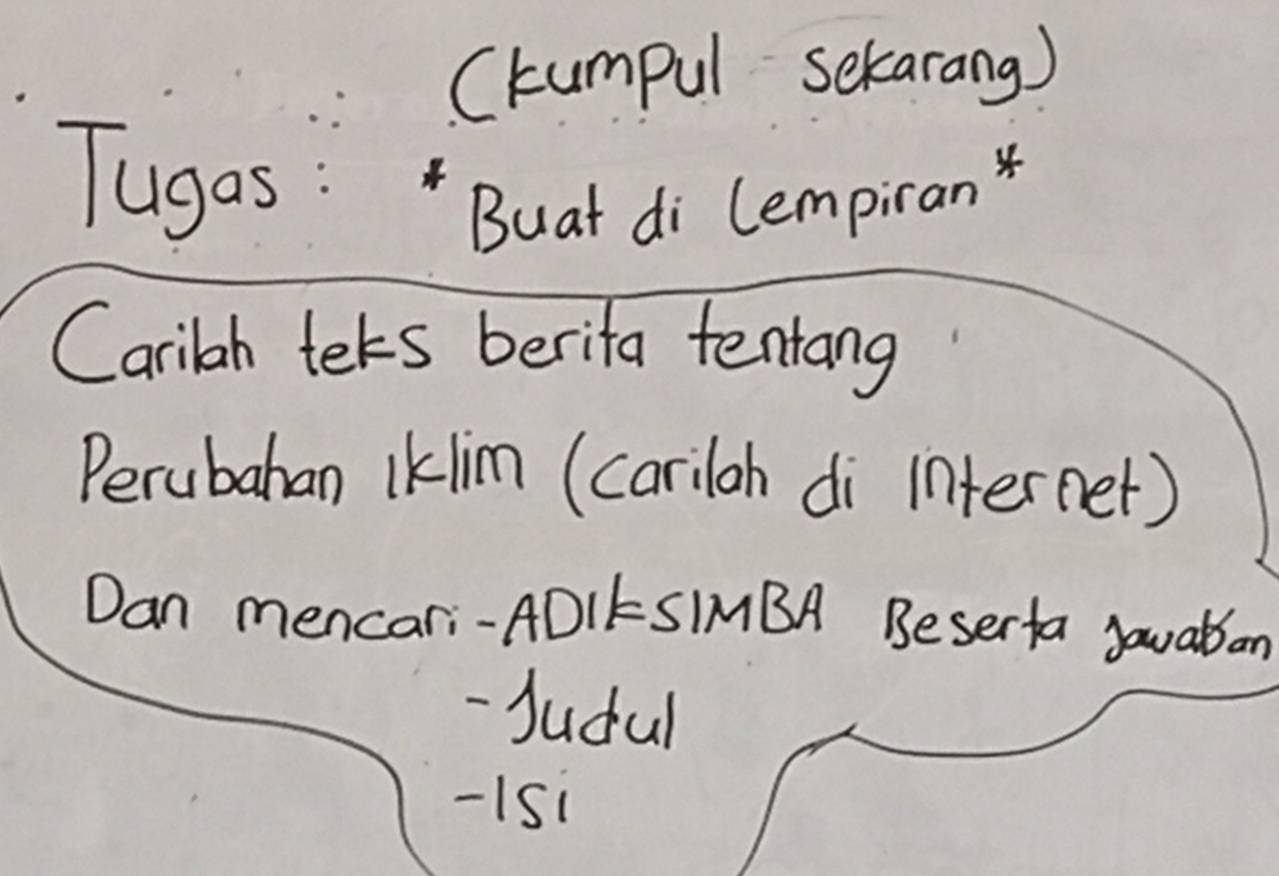 (kumpul sekarang)
Tugas : * Buat di lempiran *
Carilah teks berita tentang
Perubahan iklim (carilah di internet)
Dan mencari - ADIKSIMBA Beserta jawaban
- Judul
- Isi